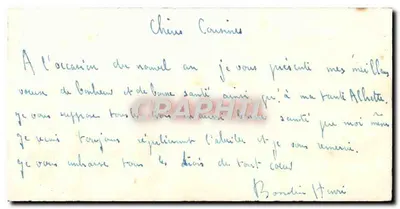 Chères Cousines
A l'occasion du nouvel an je vous présente mes meilleurs
voeux de bonheur et de bonne santé ainsi qu'à ma tante
je vous suppose toutes trois aussi santé que moi même
je reçois toujours régulièrement et je vous remercie
je vous embrasse tous les trois de tout coeur
Henri